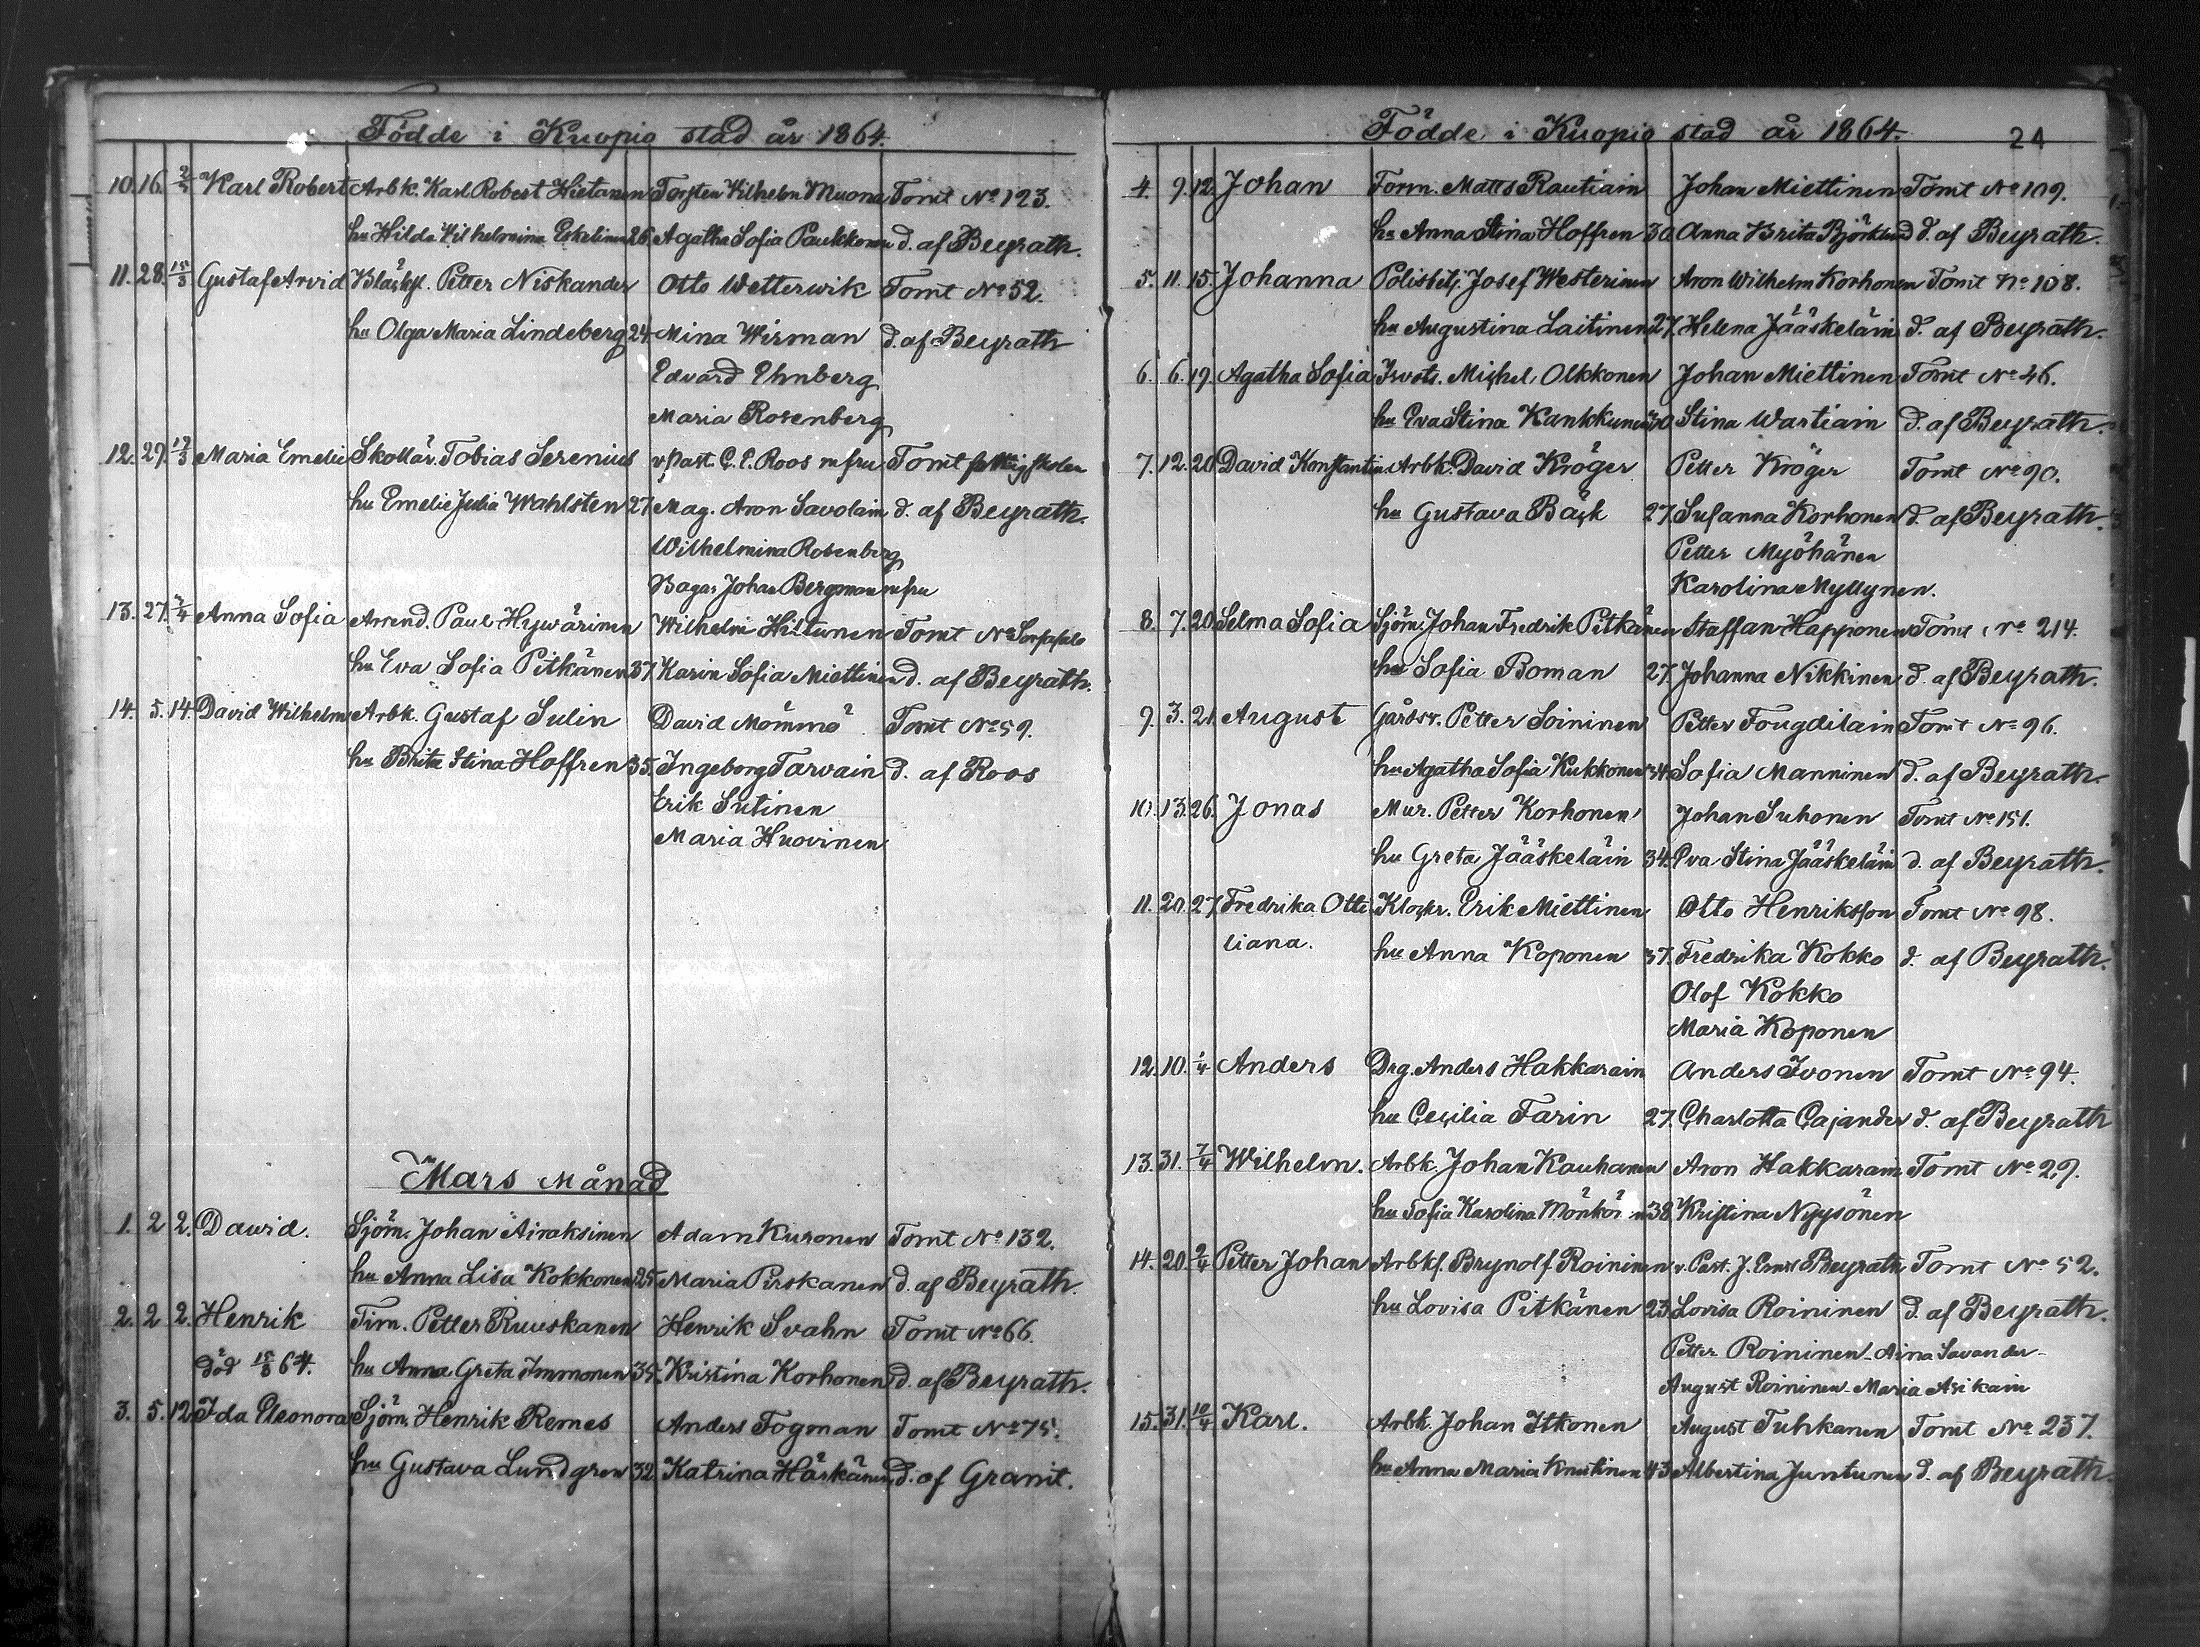 Födde i Kuopio stad år 1864.
10. 16. 2/3 Karl Robert Arbk. Karl Robert Hietanen Torsten Wilhelm Muona Tomt No 123.
hu Hilda Wilhelmina Eskelinen 26. Agatha Sofia Paukkonen d. af Beyrath.
11. 28. 15/3 Gustaf Arvid Petter Niskander Otto Wetterwik Tomt No 52.
hu Olga Maria Lindeberg 24. Mina Wirman d. af Beyrath
Edvard Ehnberg
Maria Rosenberg
12. 29. 17/3 Maria Emelie Skollär. Tobias Serenius v. Past. C. E. Roos m fru Tomt fattigskolen
hu Emelie Julia Wahlsten 27. Mag. Aron Savolain d. af Beyrath.
Wilhelmina Rosenberg
Bagar. Johan Bergman m fru
13. 27. 2/4 Anna Sofia Arrend. Paul Hywärinen Wilhelm Hiltunen Tomt No
hu Eva Sofia Pitkänen 37. Karin Sofia Miettinen d. af Beyrath.
14. 5. 14. David Wilhelm Arbk. Gustaf Sulin David Mömmö Tomt No 59.
hu Brita Stina Hoffren 35. Ingeborg Tarvain d. af Roos
Erik Sutinen
Maria Huovinen
Mars Månad
1. 2 2. David. Sjöm. Johan Airaksinen Adam Kuronen Tomt No 132.
hu Anna Lisa Kokkonen 25. Maria Pirskanen d. af Beyrath.
2. 2 2. Henrik Tim. Petter Ruuskanen Henrik Svahn Tomt No 66.
död 15/8 64. hu Anna Greta Immonen 35. Kristina Korhonen d. af Beyrath.
3. 5. 12. Ida Eleonora Sjöm. Henrik Remes Anders Fogman Tomt No 75.
hu Gustava Lundgren 32. Katrina Härkänen d. af Granit.
Födde i Kuopio stad år 1864. 24
4. 9. 12. Johan Form. Matts Rautiain Johan Miettinen Tomt No 109.
hu Anna Stina Hoffren 30. Anna Brita Björklund d. af Beyrath.
5. 11. 15. Johanna Polisbetj. Josef Westerinen Aron Wilhelm Korhonen Tomt No 108.
hu Augustina Laitinen 27. Helena Jääskeläin d. af Beyrath.
6. 6. 19. Agatha Sofia Michel Olkkonen Johan Miettinen Tomt No 46.
hu Eva Stina Kankkunen Stina Wartiain d. af Beyrath.
7. 12. 20. David Konstantin Arbk. David Kröger Petter Kröger Tomt No 90.
hu Gustava Bäck 27. Susanna Korhonen d. af Beyrath.
Petter Myöhänen
Karolina Myllynen.
8. 7. 20. Selma Sofia Sjöm. Johan Fredrik Pitkänen Staffan Happonen Tomt No 214.
hu Sofia Boman 27. Johanna Nikkinen d. af Beyrath.
9. 3. 21. August Gårdsr. Petter Soininen Petter Fougdilain Tomt No 96.
hu Agatha Sofia Kukkonen 34. Sofia Manninen d. af Beyrath.
10. 13. 26. Jonas Mur. Petter Korhonen Johan Suhonen Tomt No 151.
hu Greta Jääskeläin 34. Eva Stina Jääskeläin d. af Beyrath.
11. 20. 27. Fredrika Otti Klockr. Erik Miettinen Otto Henriksson Tomt No 98.
liana. hu Anna Koponen 37. Fredrika Kokko d. af Beyrath.
Olof Kokko
Maria Koponen
12. 10. 1/4 Anders Drg. Anders Hakkarain Anders Ivonen Tomt No 94.
hu Cecilia Farin 27. Charlotta Cajander d. af Beyrath
13. 31. 7/4 Wilhelm. Arbk. Johan Kauhanen Aron Hakkarain Tomt No 29.
hu Sofia Karolina Mönkönen 38. Kristina Nyysönen
14. 20. 2/4 Petter Johan Arbk. Brynolf Roininen v. Past. J. Ernst Beyrath Tomt No 52.
hu Lovisa Pitkänen 23. Lovisa Roininen d. af Beyrath.
Petter Roininen - Aina Savander -
August Roininen - Maria Asikain
15. 31. 10/4 Karl. Arbk. Johan Itkonen August Tuhkanen Tomt No 237.
hu Anna Maria Knutinen 43. Albertina Juntunen d. af Beyrath.